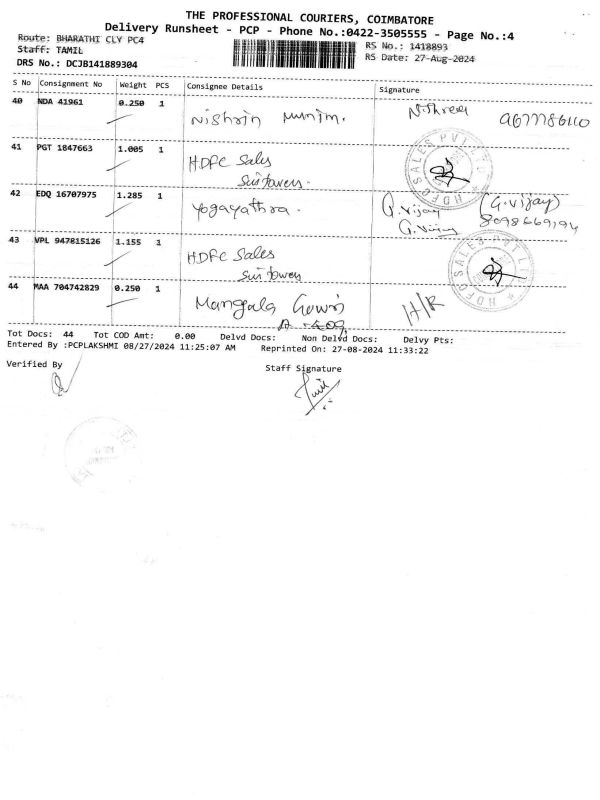 THE PROFESSIONAL COURIERS, COIMBATORE
Delivery Runsheet - PCP - Phone No.:0422-3505555 - Page No.:4
Route: BHARATHI CLY PC4
RS No.: 1418893
Staff: TAMIL
RS Date: 27-Aug-2024
DRS No.: DCJB141889304
S No Consignment No Weight PCS Consignee Details Signature
40 NDA 41961 0.250 1 Nishrin Munim.
41 PGT 1847663 1.005 1 HDFC Sales
HDFC SALES PVT LTD
42 EDQ 16707975 1.285 1 Yogayathra. G.Vijay (G.Vijay)
G.Vijay 8098669194
43 VPL 947815126 1.155 1 HDFC Sales
HDFC SALES PVT LTD
44 MAA 704742829 0.250 1 Mangala Gowri H/R
Tot Docs: 44 Tot COD Amt: 0.00 Delvd Docs: Non Delvd Docs: Delvy Pts:
Entered By :PCPLAKSHMI 08/27/2024 11:25:07 AM Reprinted On: 27-08-2024 11:33:22
Verified By Staff Signature